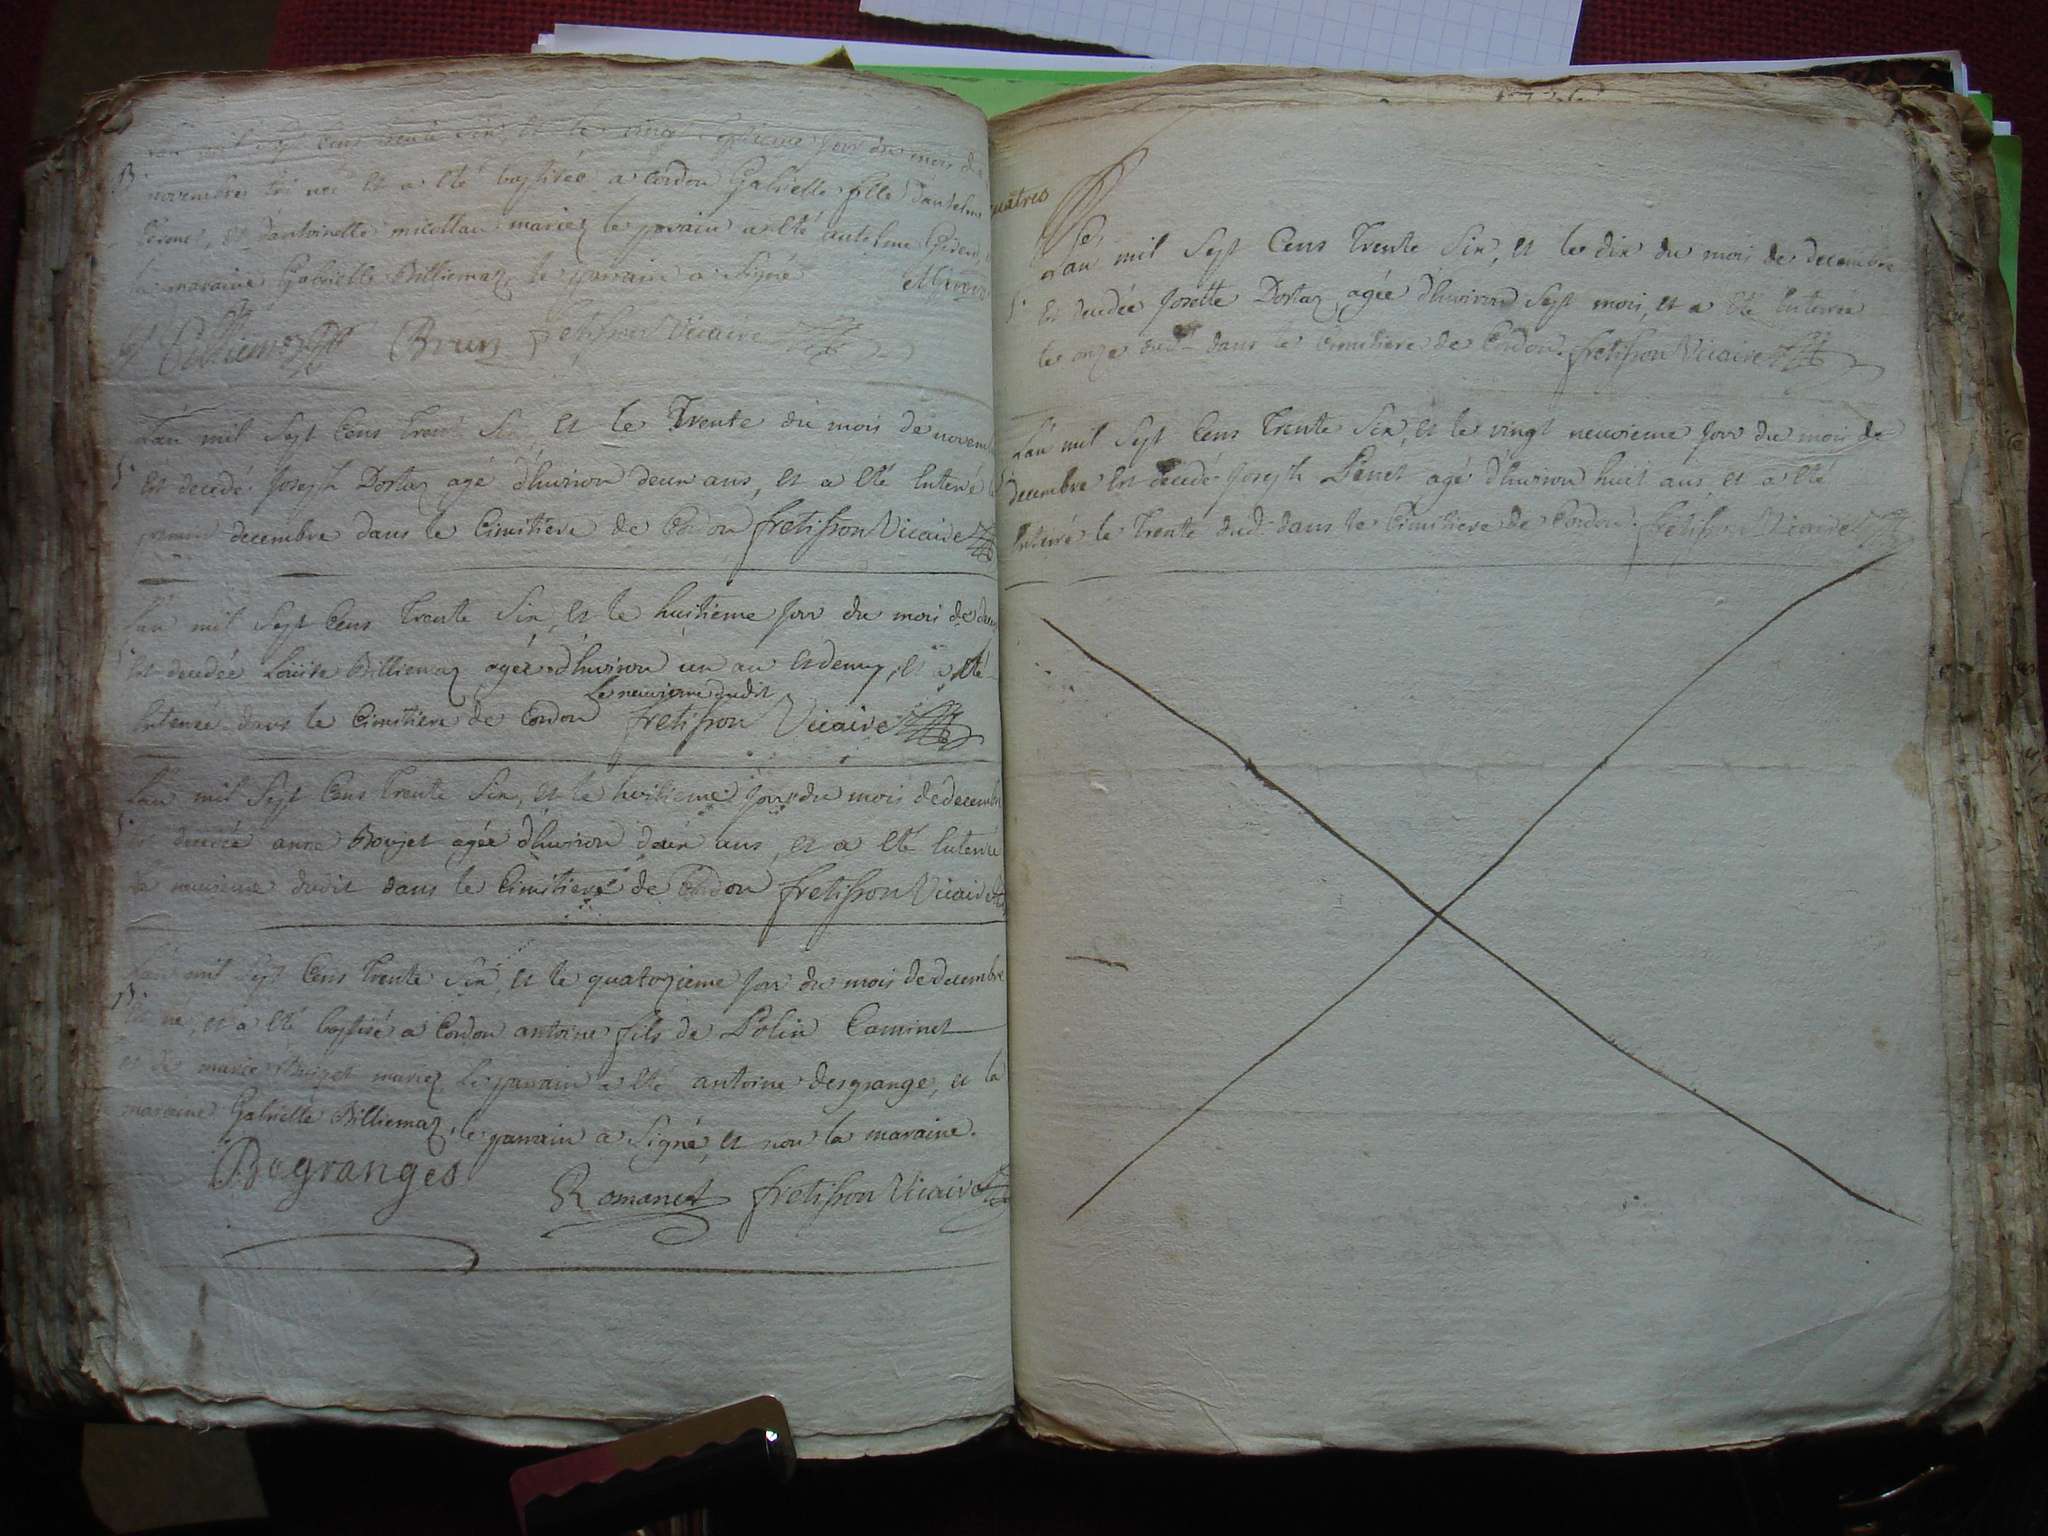 mil sept cens trente six, et le vingt septieme jour du mois de
B.
novembre est née et a été baptisée a Cordon Gabrielle fille d'antelme
et d'antoinette micollau mariez le parain a été antelme
la maraine Gabrielle Billiemaz, le parain a signé
Billiemaz Brun fretisson Vicaire
L'an mil sept cens trente six, et le trente du mois de novemb
S. est decedé Joseph Dortaz agé d'huiron deux ans, et a été enterré le
premier decembre dans le Cimitiere de Cordon fretisson Vicaire
L'an mil sept cens trente six, et le huitieme jour du mois de decem
est decedée Louise Billiemaz agée d'huiron un an et demy, et a été
le neuvieme dudit
enterrée dans le Cimitiere de Cordon fretisson Vicaire
L'an mil sept cens trente six, et le huitieme jour du mois de decembre
S. est decedée anne Boujet agée d'huiron deux ans, et a été enterrée
le neuvieme dudit dans le Cimitiere de Cordon fretisson Vicaire
L'an mil sept cens trente six, et le quatorzieme jour du mois de decembre
B. est né, et a été baptisé a Cordon antoine fils de Polin Caminet
et de marie mariez le parain a été antoine desgrange, et la
maraine Gabrielle Billiemaz, le parain a signé, et non la maraine.
Degranges
Romanet fretisson Vicaire
quatres
L'an mil sept cens trente six, et le dix du mois de decembre
S. est decedée Josette Dortaz agée d'huiron sept mois, et a été enterrée
le onze dud. dans le cimitiere de Cordon. fretisson Vicaire
L'an mil sept cens trente six, et le vingt neuvieme jour du mois de
decembre est decedé Joseph Penet agé d'huiron huit ans, et a été
enterré le trente dud. dans le Cimitiere de Cordon. fretisson Vicaire